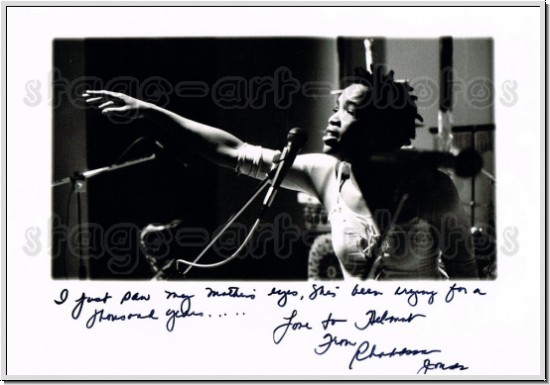 stage-art-photos
stage-art-photos
I just saw my mother's eyes, She's been crying for a
thousand years.....
Love to Helmut
From
Rhodessa
Jones